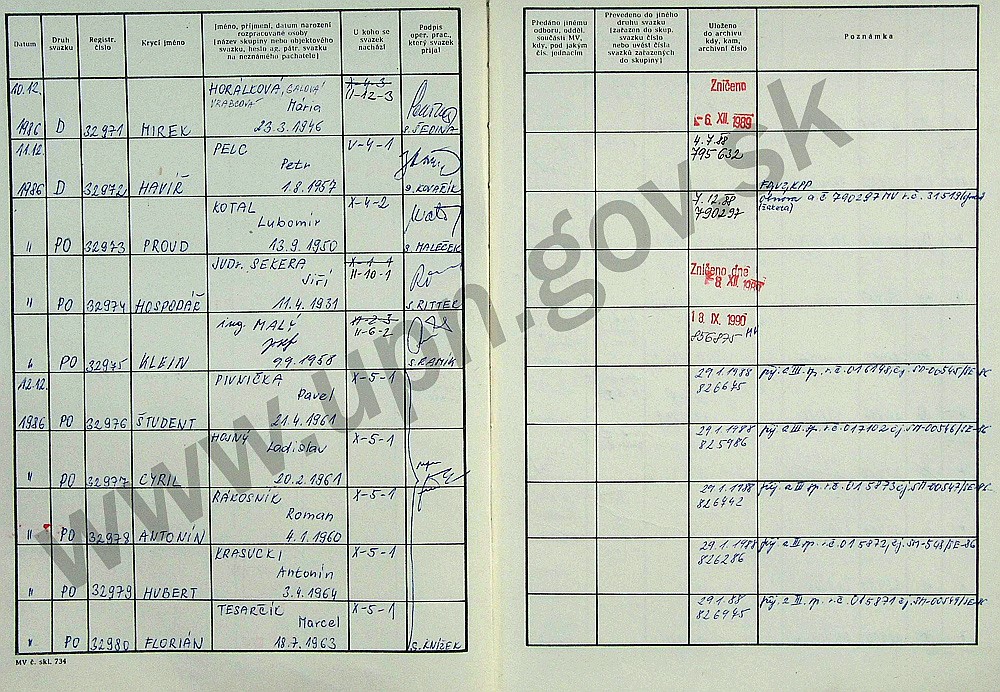 Datum
Druh svazku
Registr. číslo
Krycí jméno
Jméno, příjmení, datum narození
rozpracované osoby
(název skupiny nebo objektového
svazku, heslo ag. pátr. svazku
na neznámého pachatele)
U koho se
svazek
nachází
Podpis
oper. prac.,
který svazek
přijal
Předáno jinému
odboru, odděl.
součásti MV,
kdy, pod jakým
čís. jednacím
Převedeno do jiného
druhu svazku
(zařazen do skup.
svazku číslo
nebo uvést čísla
svazků zařazených
do skupiny)
Uloženo
do archivu
kdy, kam,
archivní číslo
Poznámka
10.12. HORÁLKOVÁ, GALOVÁ X-4-3 Zničeno
VRABCOVÁ Mária II-12-3
1986 D 32971 MIREK 23.3.1946 s. ŠEDINA 6. XII. 1989
11.12. PELC V-4-1 4.7.88
Petr 795632
1986 D 32972 HAVÍŘ 1.8.1957 s. KOVAŘÍK
KOTAL X-4-2 7.12.88
Lubomír 790297
" PO 32973 PROUD 13.9.1950 s. MALEČEK
JUDr. SEKERA X-1-1 Zničeno dne
Jiří II-10-1 8. XII.
" PO 32974 HOSPODÁŘ 11.4.1931 S. RITTER
ing. MALÝ X-2-3 18. IX. 1990
Josef II-6-2 856875 MV
" PO 32975 KLEIN 9.9.1958
12.12. PIVNIČKA X-5-1 29.1.1988
Pavel 826675
1986 PO 32976 ŠTUDENT 21.4.1961
HOJNÝ X-5-1 29.1.1988
Ladislav 825986
" PO 32977 CYRIL 20.2.1961
RÁKOSNÍK X-5-1 29.1.1988
Roman 826442
" PO 32978 ANTONÍN 4.1.1960
KRASUCKI X-5-1 29.1.1988
Antonín 826286
" PO 32979 HUBERT 3.4.1964
TESARČÍK X-5-1 29.1.88
Marcel 826945
" PO 32980 FLORIÁN 18.7.1963 s. KNÍŽEK
MV č. skl. 734
www.upn.gov.sk